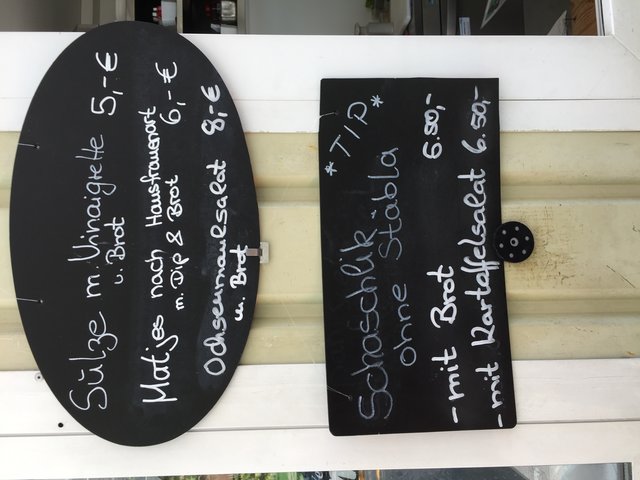 Sülze m. Vinaigrette 5,-€
u. Brot
Matjes nach Hausfrauenart
m. Dip & Brot 6,-€
Ochsenmaulsalat 8,-€
m. Brot
*TIP*
Schaschlik
ohne Stäbla
- mit Brot 6.50,-
- mit Kartoffelsalat 6.50,-